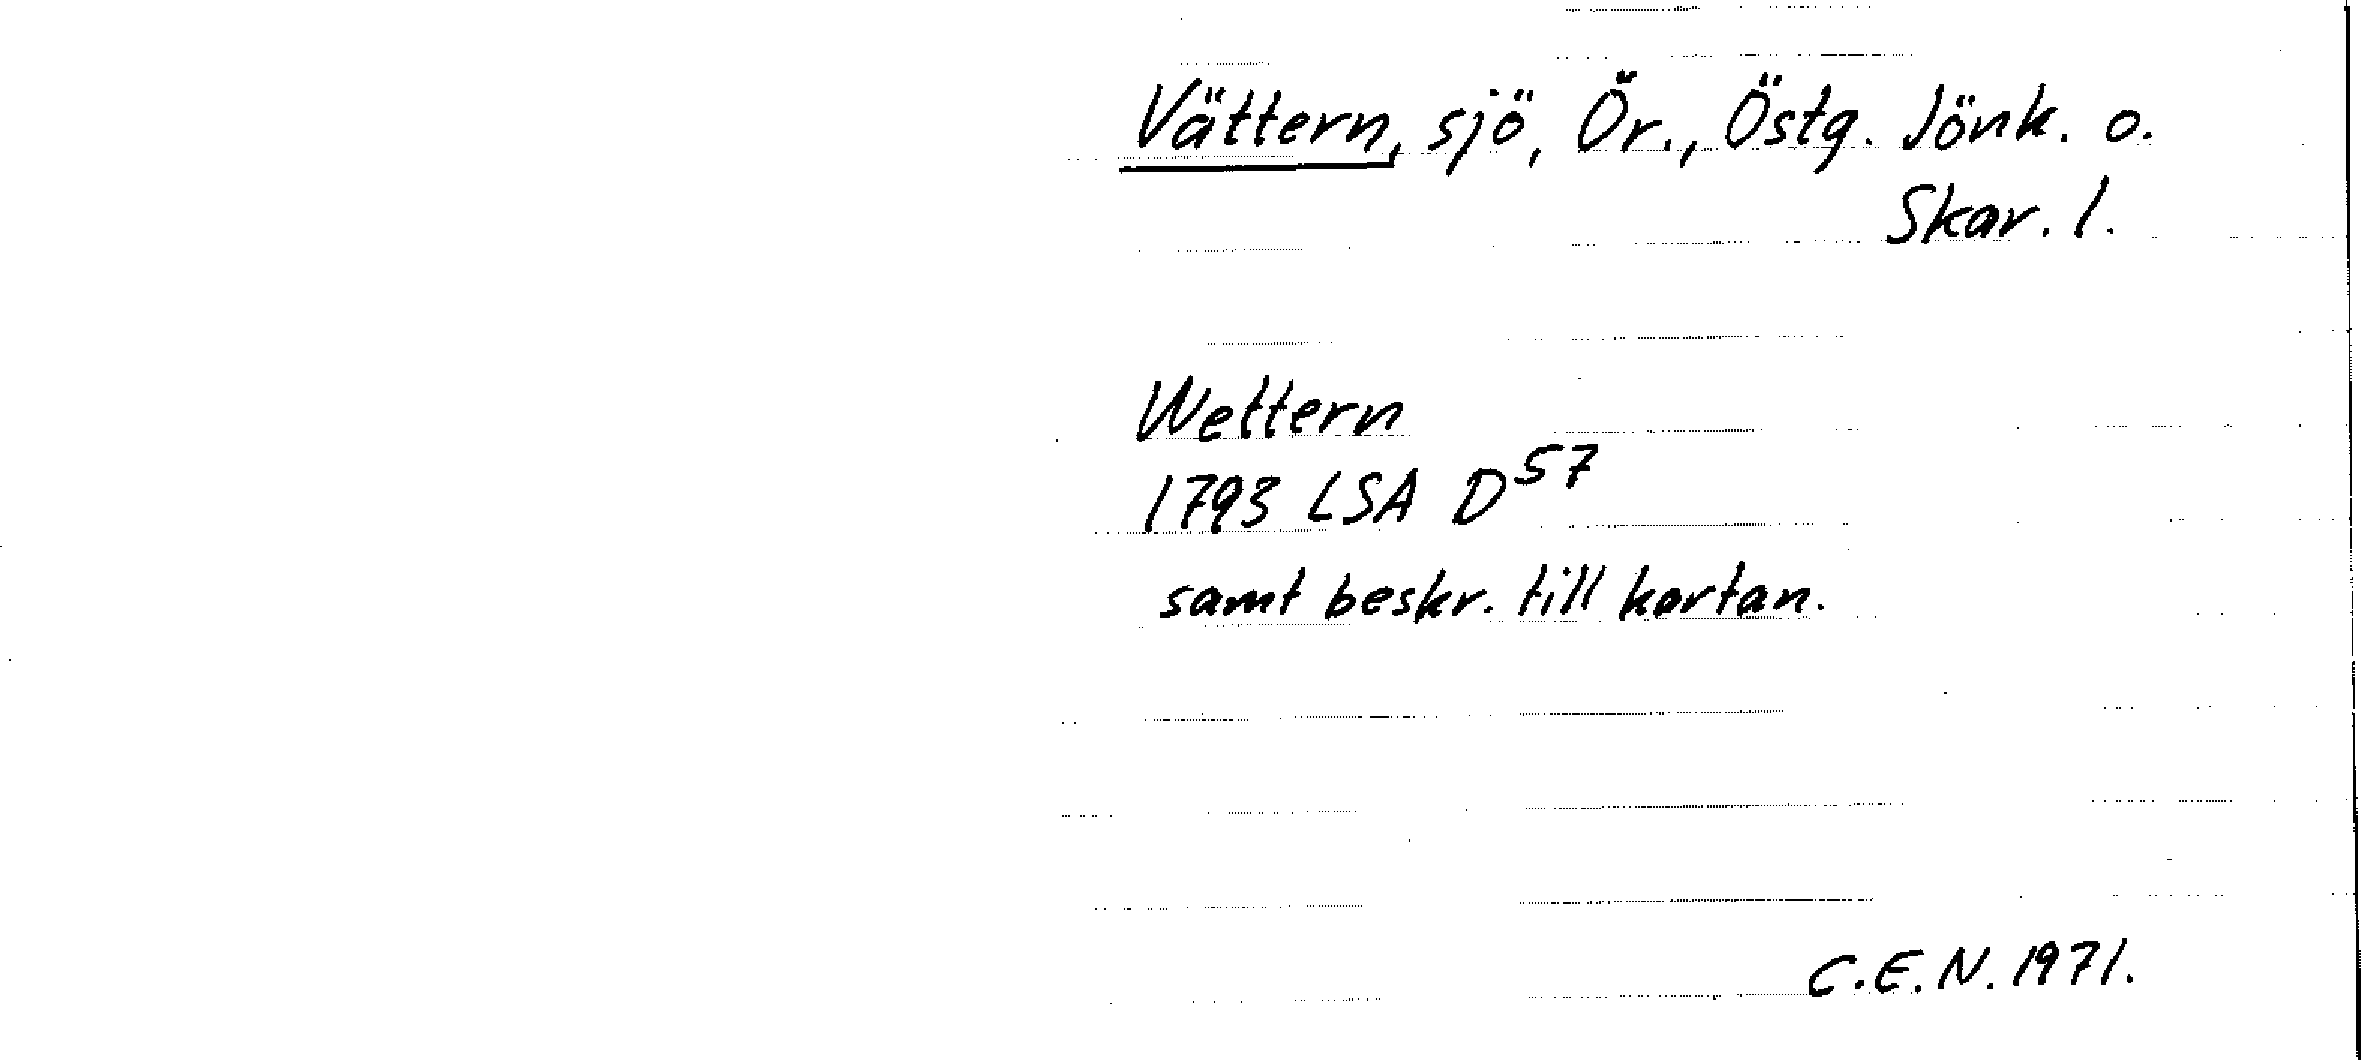 Vättern, sjö, Ör., Östg. Jönk. o.
Skar. l.
Wettern
1793 LSA D57
samt beskr. till kartan.
C.E.N. 1971.